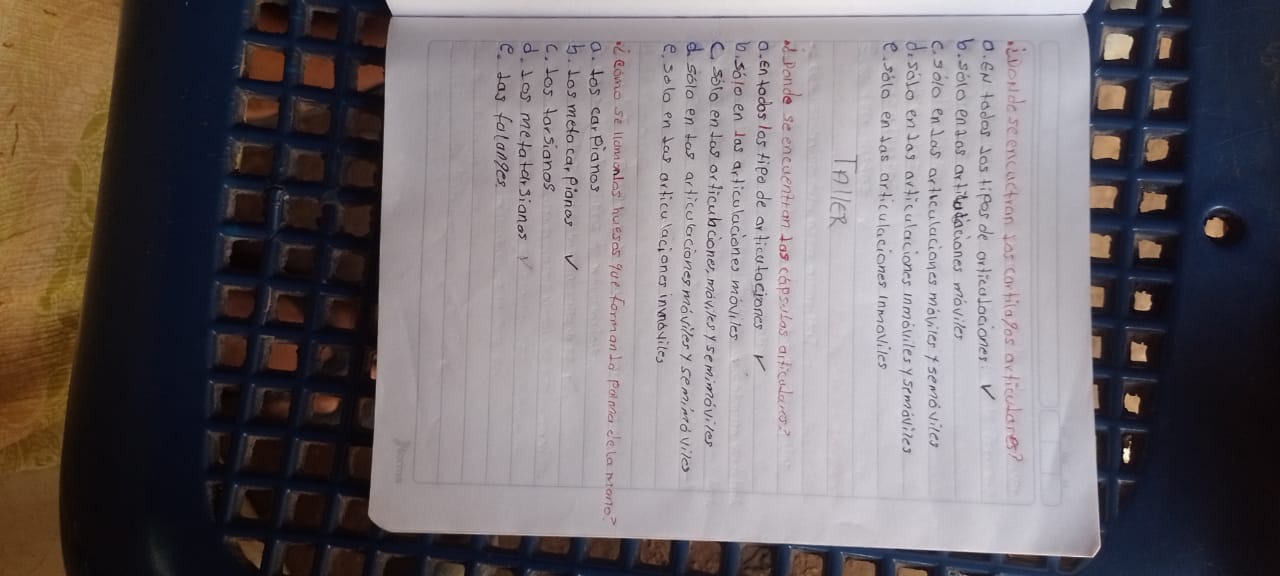 ¿DONde se encuctran los cartilagos articulares?
a. EN todos los tipos de articulaciones. ✓
b. sólo en las articulaciones móviles
c. sólo en las articulaciones móviles y semóviles
d. sólo en las articulaciones inmóviles y semóviles
e. sólo en las articulaciones inmoviles
TALLER
¿Donde se encuentran las cápsulas articulares?
a. En todos los tipo de articulaciones ✓
b. sólo en las articulaciones móviles
c. sólo en las articulaciones, móviles y semimóviles
d. sólo en las articulaciones móviles y semimóviles
e. solo en las articulaciones inmóviles
¿cómo se llaman los huesos que forman la palma de la mano?
a. los carpianos
b. los metocarpianos ✓
c. los tarsianos
d. los metatarsianos ✓
e. las falanges
Norma